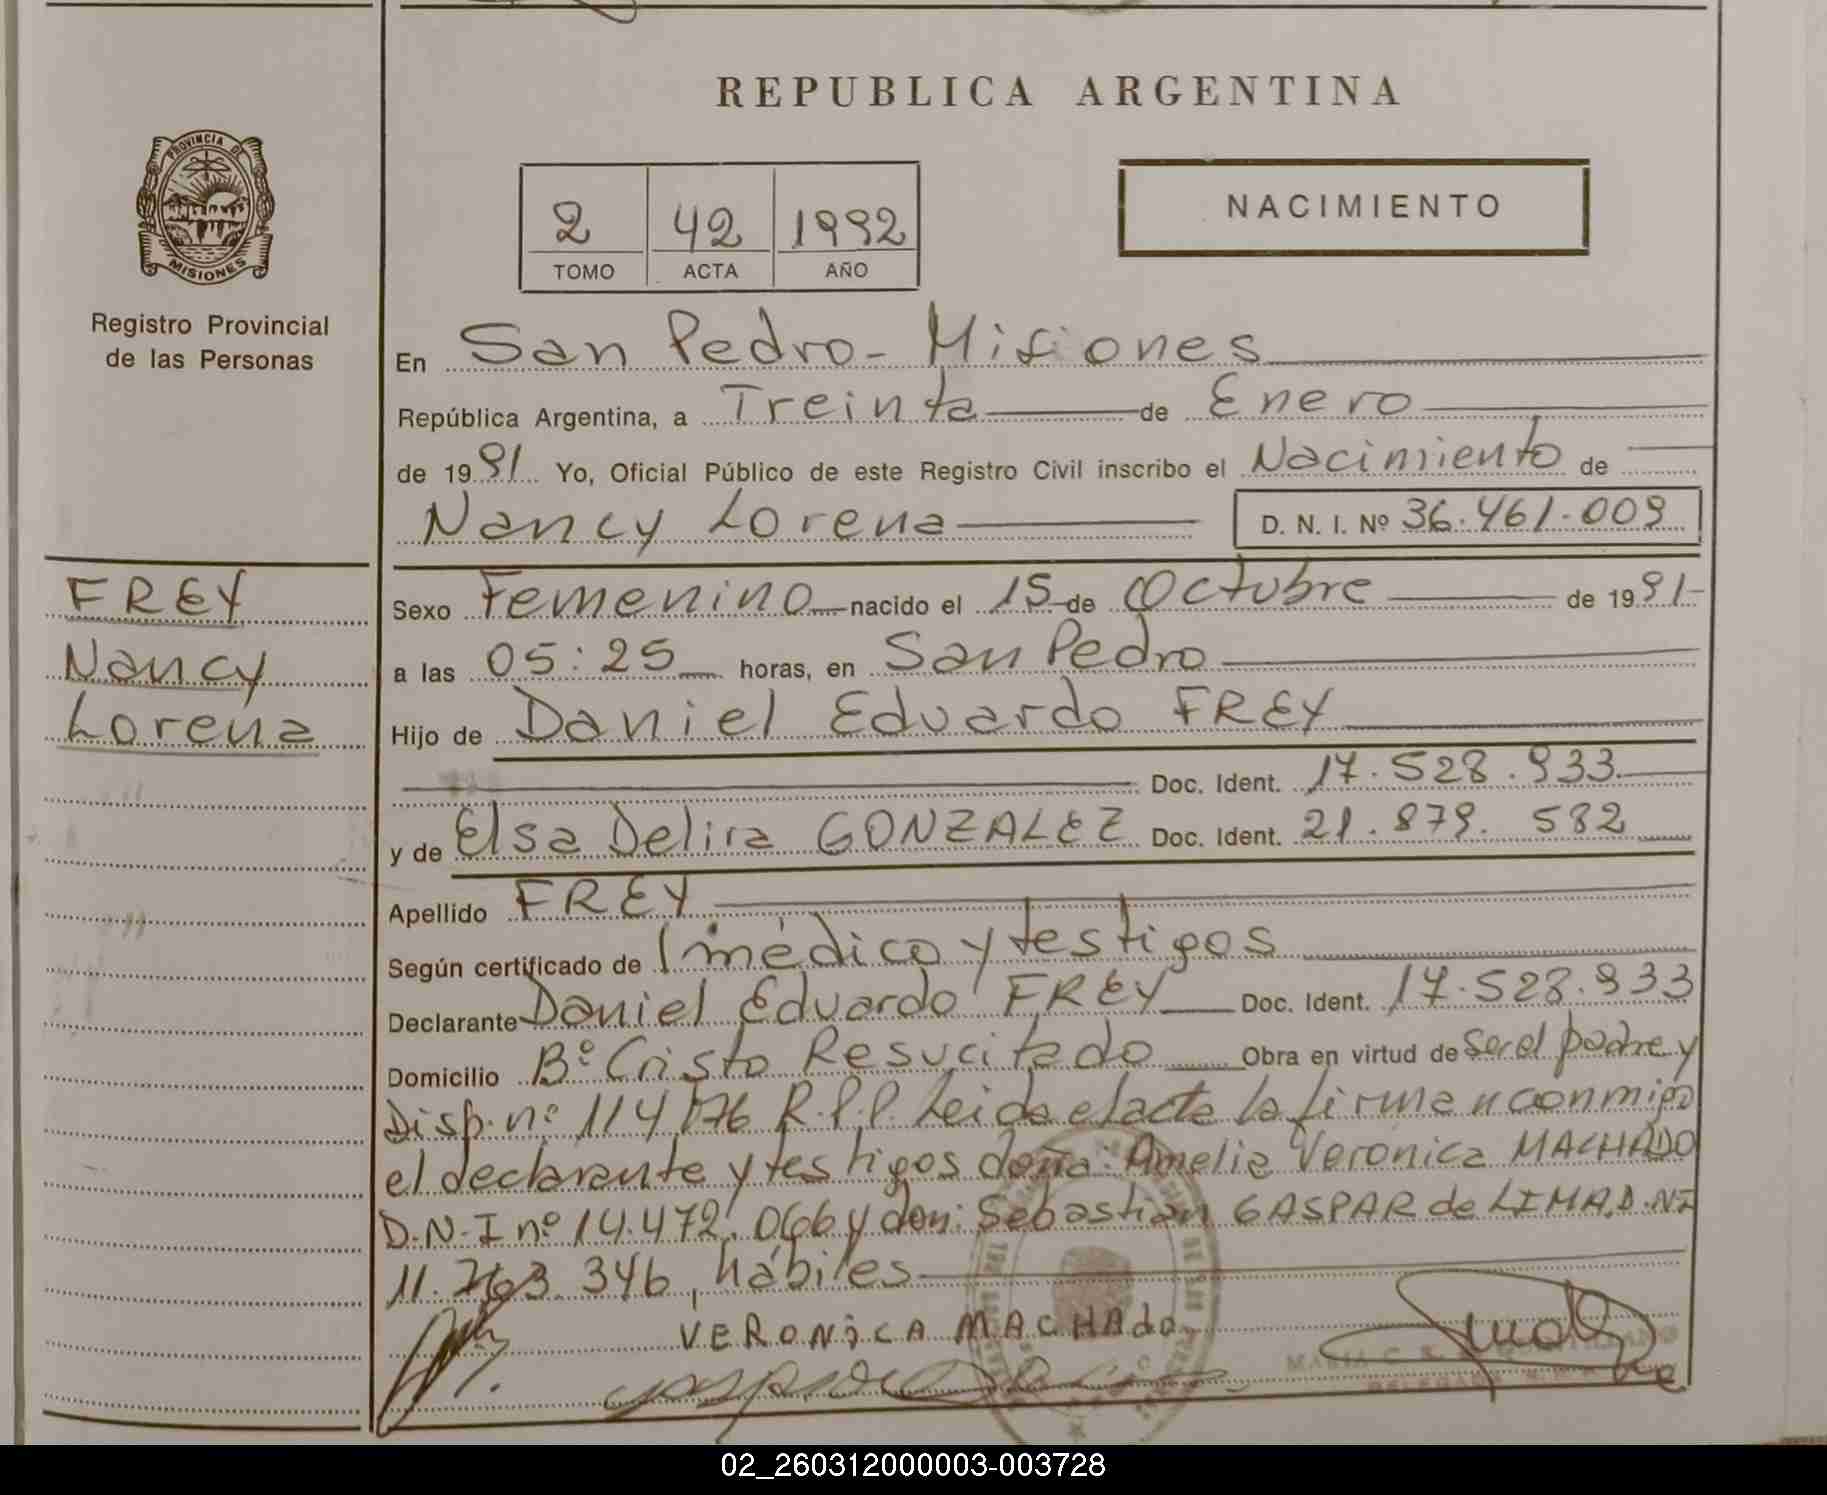 REPUBLICA ARGENTINA
PROVINCIA DE
MISIONES
Registro Provincial
de las Personas
2 42 1992
TOMO ACTA AÑO
NACIMIENTO
En San Pedro - Misiones
República Argentina, a Treinta de Enero
de 1991 Yo, Oficial Público de este Registro Civil inscribo el Nacimiento de
Nancy Lorena D. N. I. Nº 36.461.009
FREY
Nancy
Lorena
Sexo Femenino nacido el 15 de Octubre de 1991-
a las 05:25 horas, en San Pedro
Hijo de Daniel Eduardo FREY
Doc. Ident. 17.528.933
y de Elsa Delira GONZALEZ Doc. Ident. 21.879.582
Apellido FREY
Según certificado de médico y testigos
Declarante Daniel Eduardo FREY Doc. Ident. 17.528.933
Domicilio Bº Cristo Resucitado Obra en virtud de ser el padre y
Disp. nº 114/76 R.P.P. Leida el acta la firman conmigo
el declarante y testigos doña: Amelia Veronica MACHADO
D.N.I nº 14.472.066 y don: Sebastián GASPAR de LIMA, D.NI
11.763.346, hábiles
VERONiCA MACHAdo
MARIA C
02_260312000003-003728